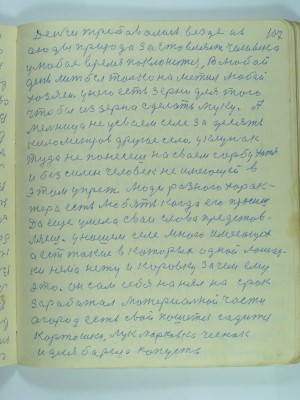 107
Деньги требовались везде и в
люды природа заставляет человека
у любое время поклонится, в любой
день
хозяин у него есть зерно для того
чтобы из зерна сделать муку. А
мелница не у всякем селе за десять
километров другое село, у клунок
туда не понесеш на своём горбу хотя
и без силен человек не имеющей в
этом упреж. Люди разного харак-
тера есть любять когда его просиш
да еще умела сваи слова предстов-
ляеш. у нашем селе много имеющих
а есть такие в которых одной лошад-
ки нема нету и коровки зачем ему
это. он сам себя нанял на срок
заработал материалной части
огород есть свой пашется садити
картошка, лук морковка чеснок
и для барща капуста